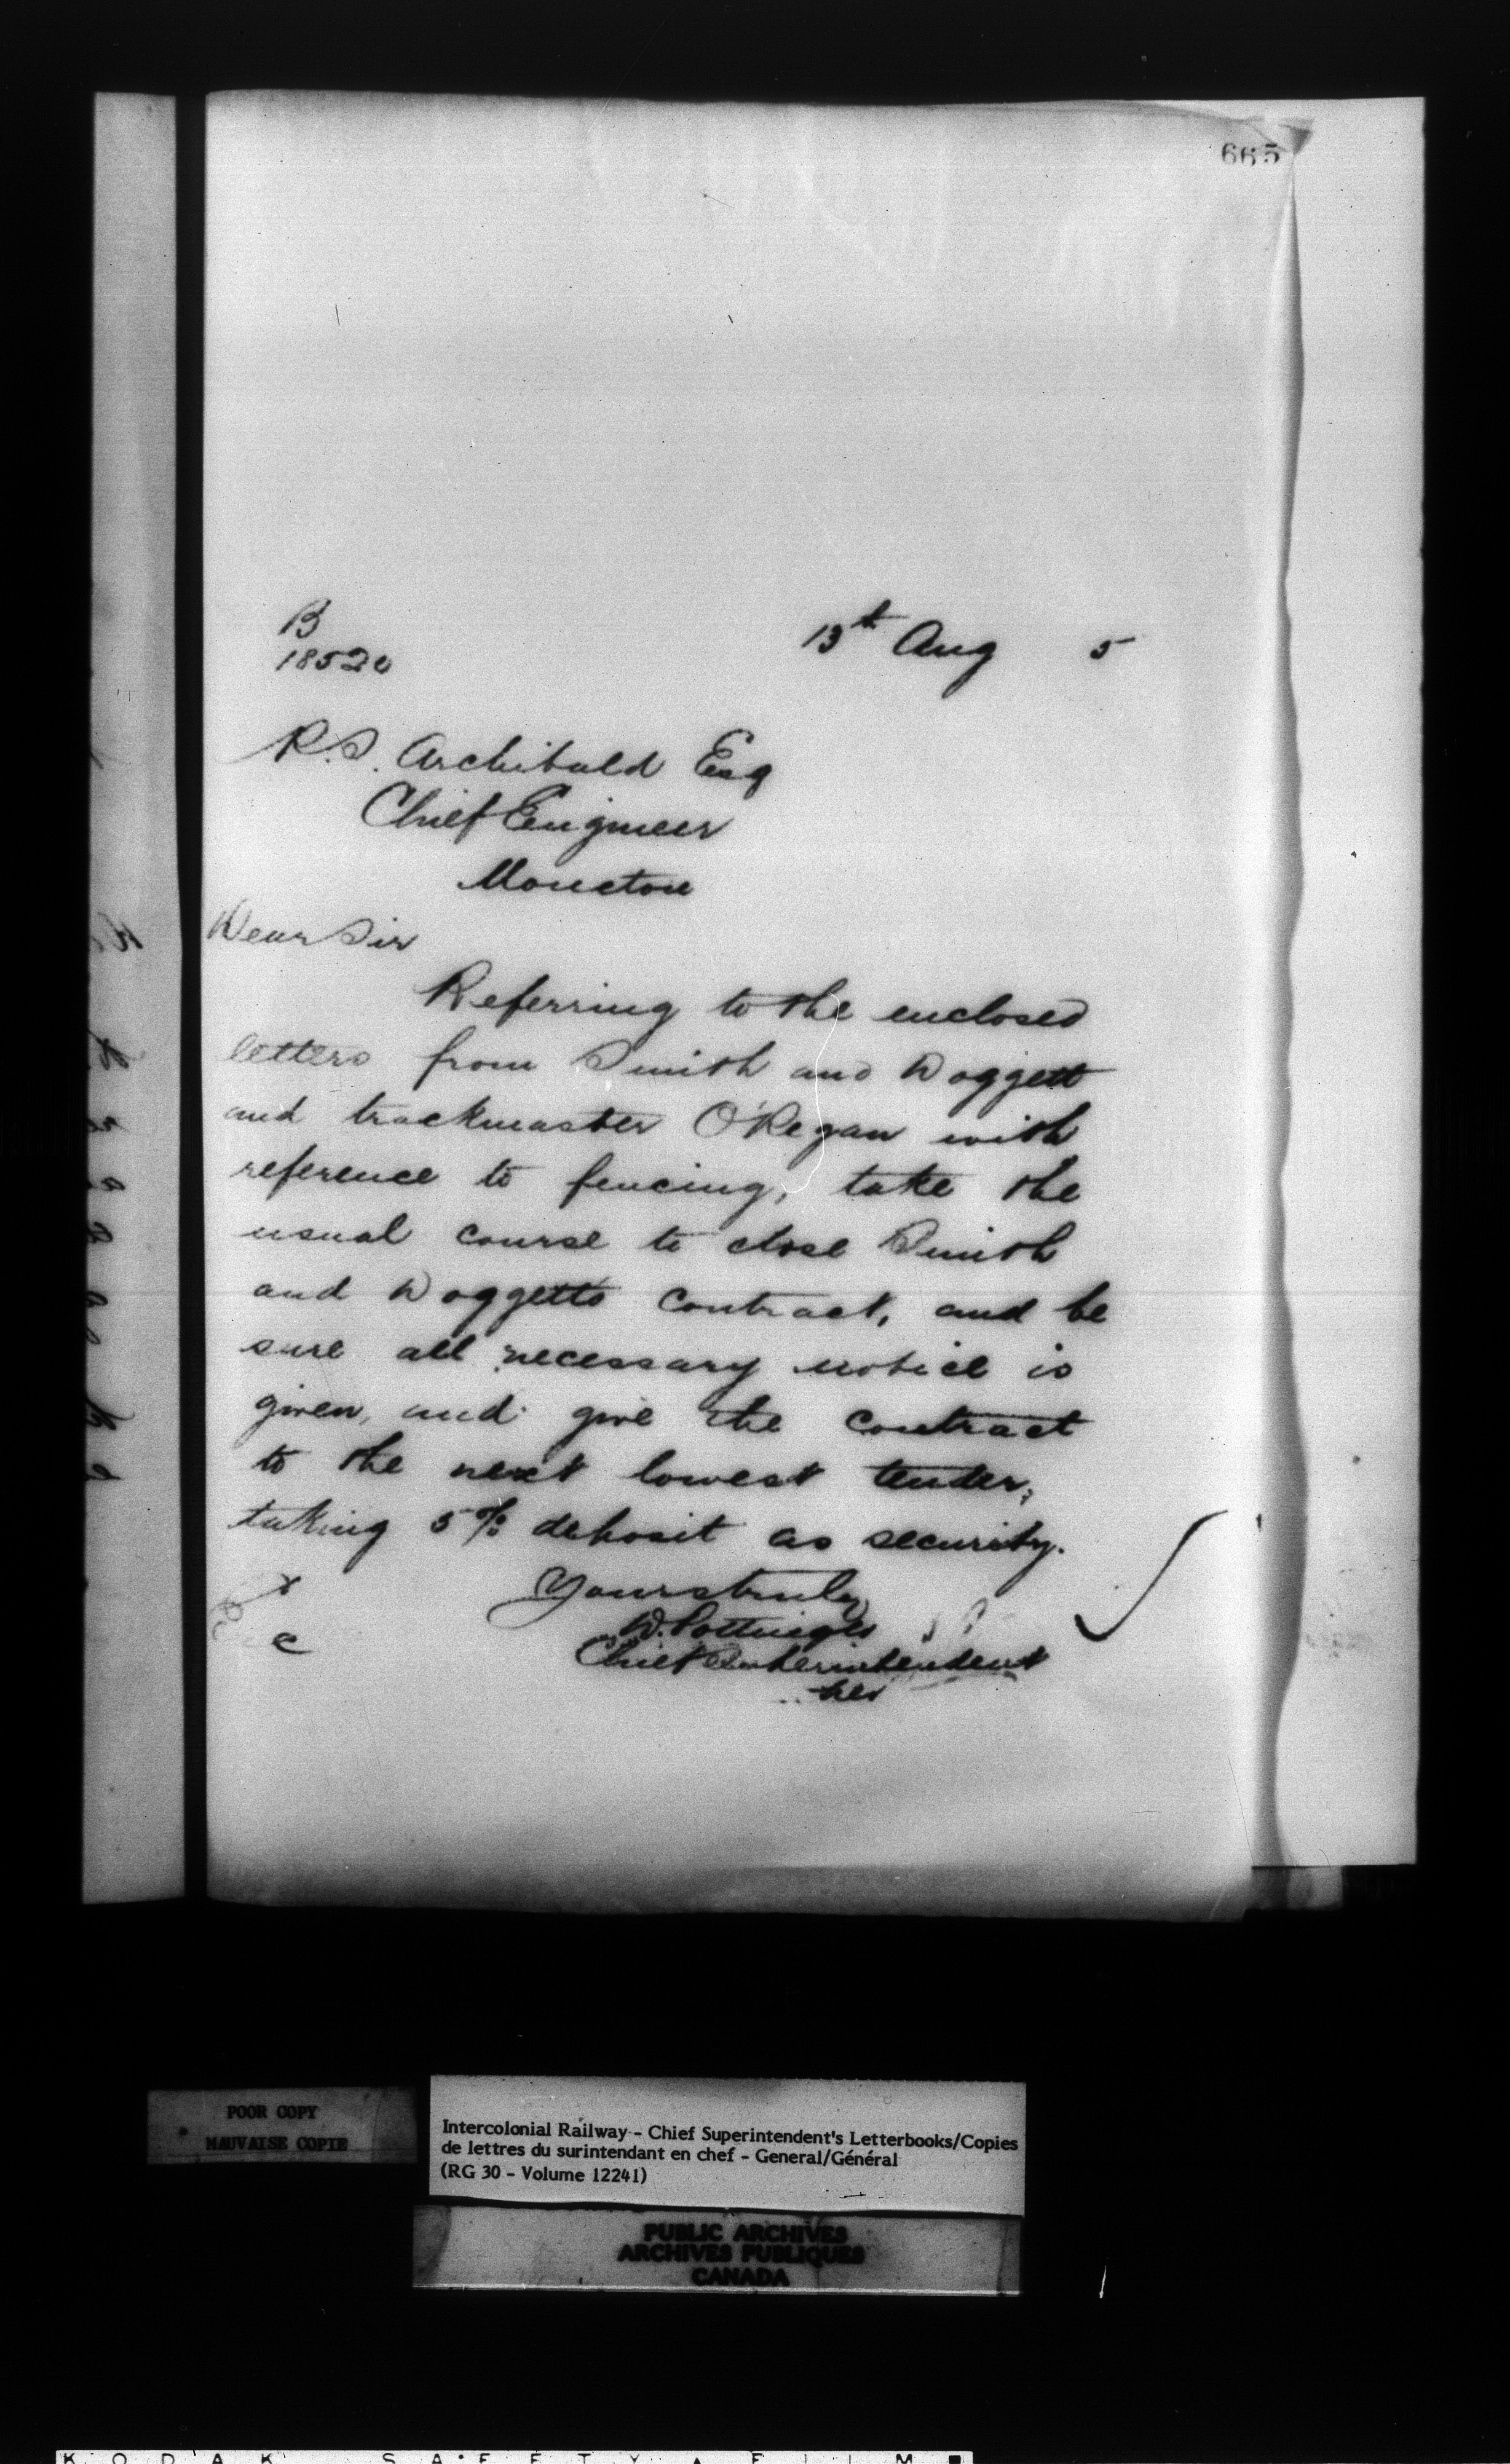 665
B
18520
13th Aug 5
P.S. Archibald Esq
Chief Engineer
Moncton
Dear Sir
Referring to the enclosed
letters from Smith and Doggett
and trackmaster O'Regan with
reference to fencing, take the
usual course to close Smith
and Doggetts contract, and be
sure all necessary notice is
given, and give the contract
to the next lowest tender,
taking 5% deposit as security.
Yours truly
D. Pottinger
Chief Superintendent
C
POOR COPY
MAUVAISE COPIE
Intercolonial Railway - Chief Superintendent's Letterbooks/Copies
de lettres du surintendant en chef - General/Général
(RG 30 - Volume 12241)
PUBLIC ARCHIVES
ARCHIVES PUBLIQUES
CANADA
KODAK SAFETY FILM